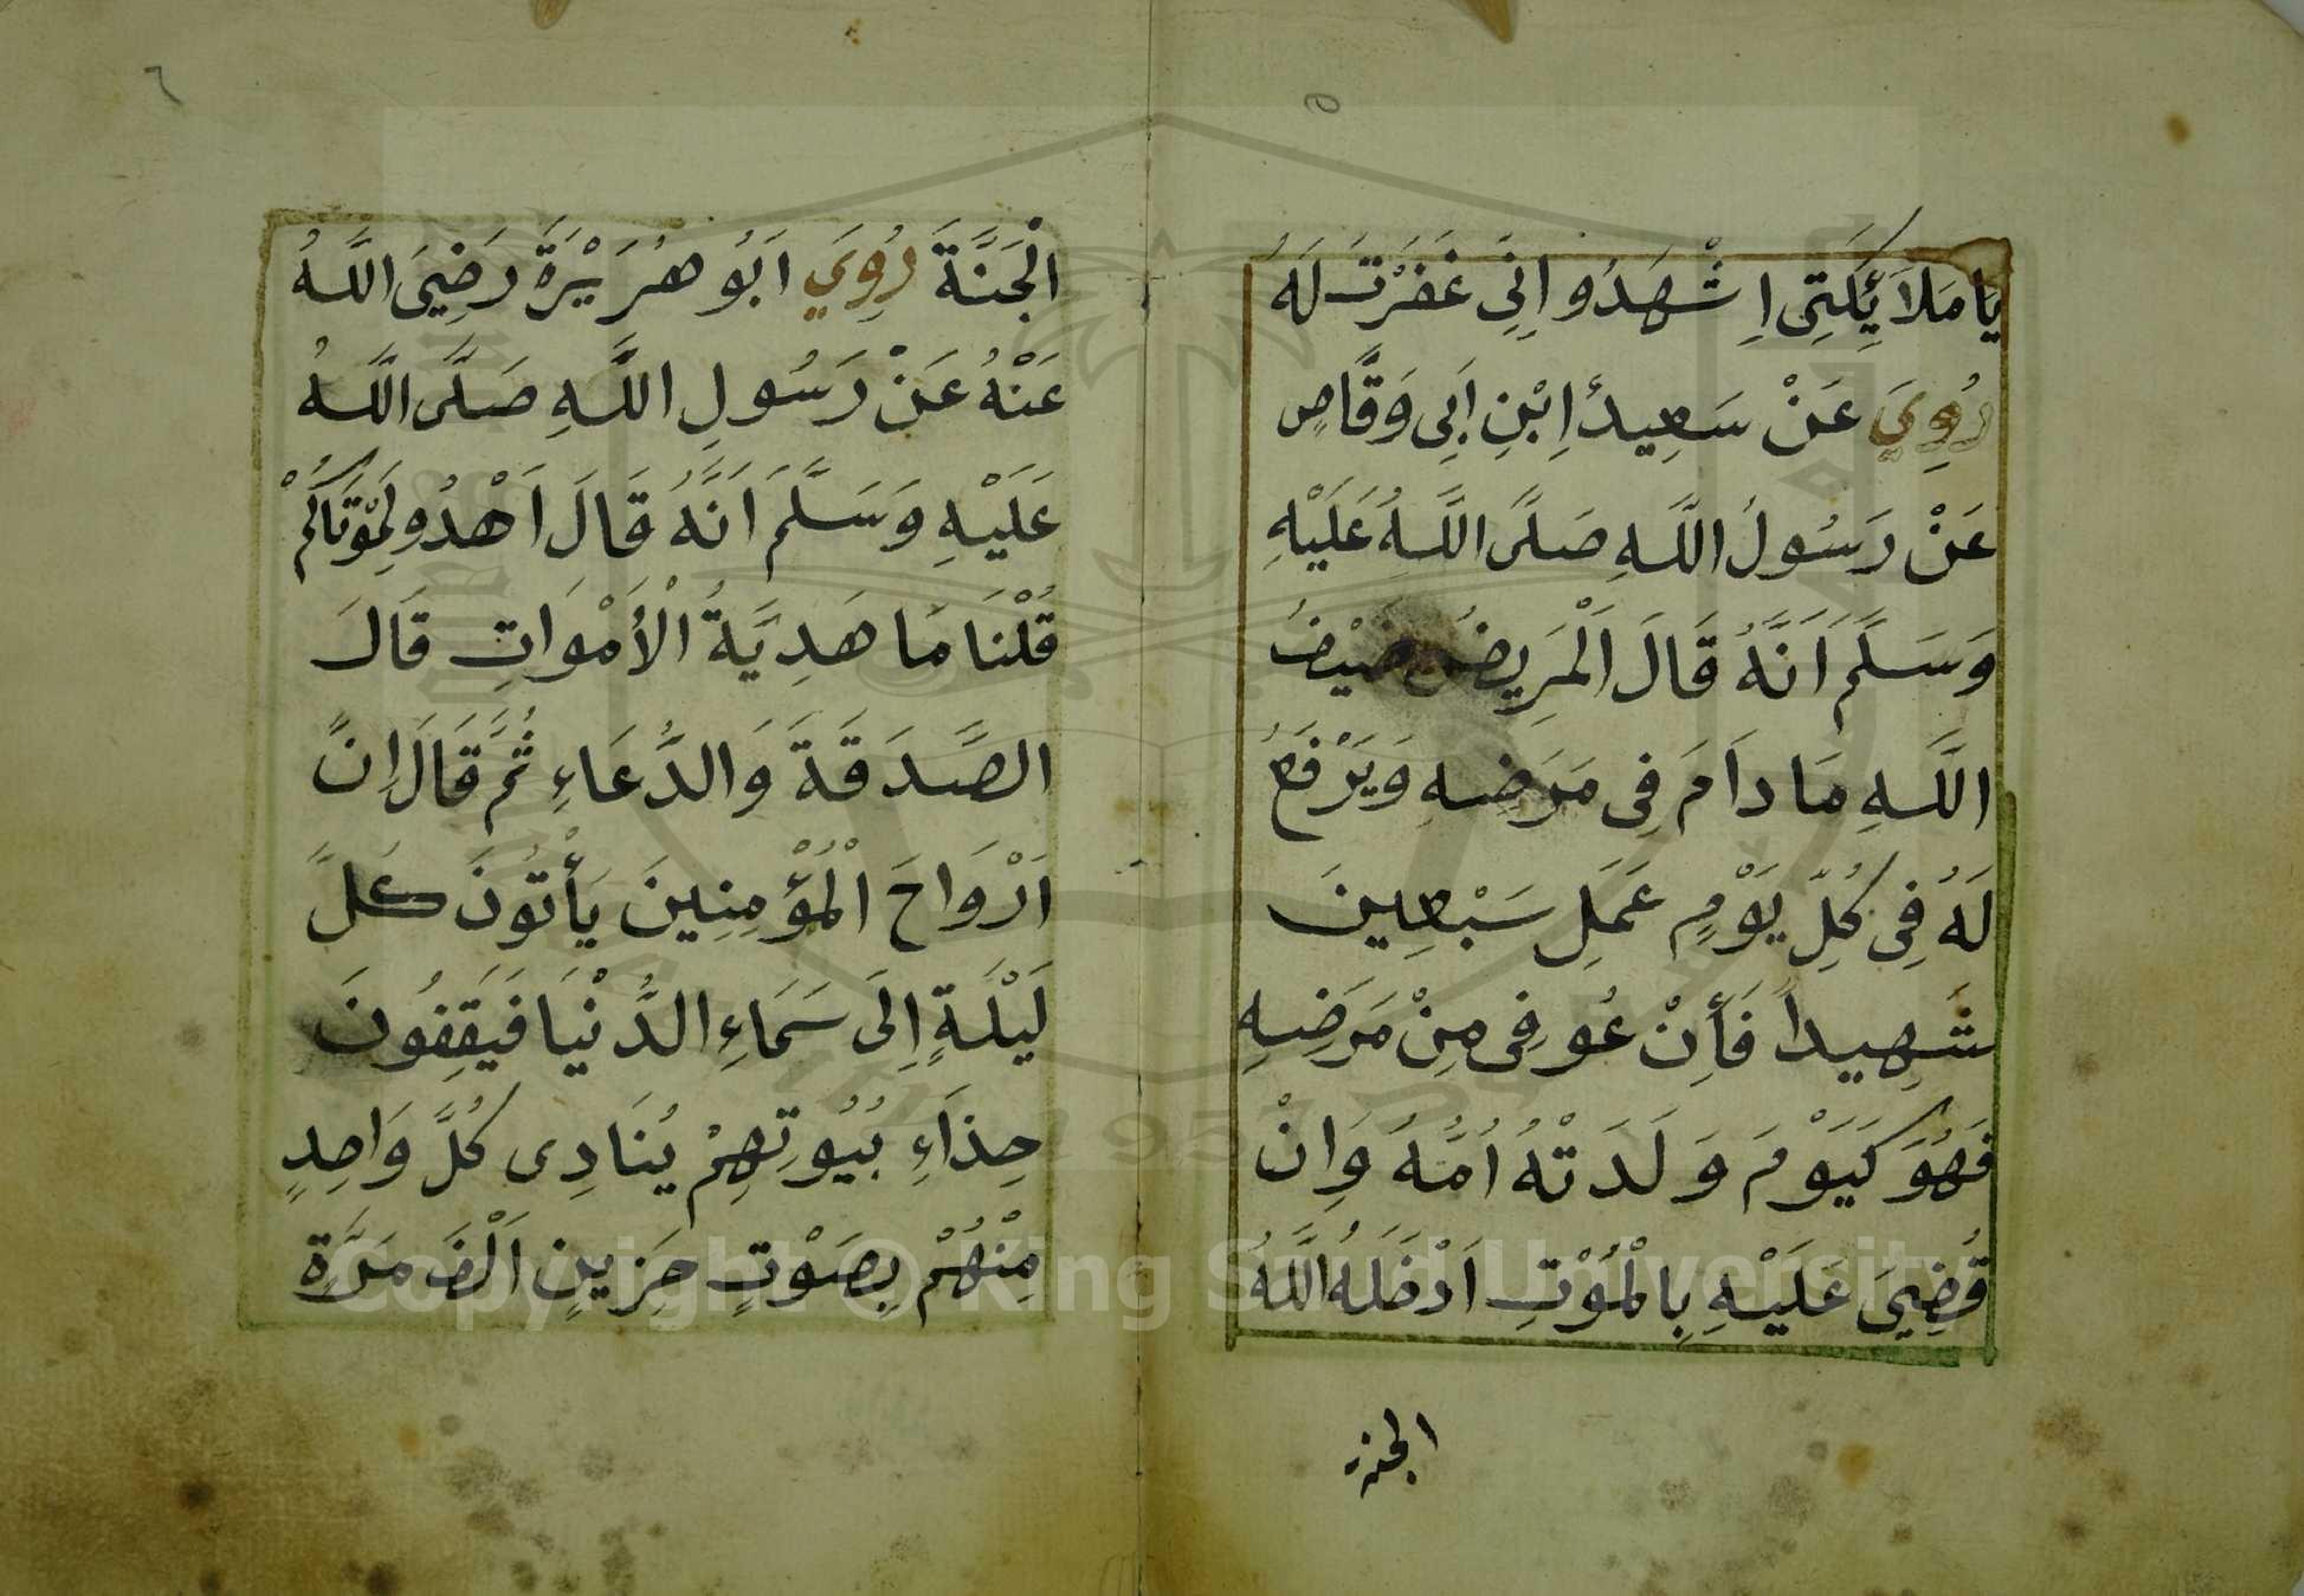 ٥
يَا مَلَائِكَتِى اِشْهَدُو اِنِّى غَفَرْتُ لَهُ
رُوِيَ عَنْ سَعِيدْ اِبْنِ اَبِى وَقَّاصٍ
عَنْ رَسُولُ اللَّهِ صَلَّى اللَّهُ عَلَيْهِ
وَسَلَّمَ اَنَّهُ قَالَ اَلْمَرِيضُ ضَيْفُ
اللَّهِ مَا دَامَ فِى مَرَضِهِ وَيَرْفَعُ
لَهُ فِى كُلِّ يَوْمٍ عَمَلِ سَبْعِينَ
شَهِيداً فَأِنْ عُوفِى مِنْ مَرَضِهِ
فَهُوَ كَيَوْمَ وَلَدَتْهُ اُمُّهُ وَاِنْ
قُضِيَ عَلَيْهِ بِالْمَوْتِ اَدْخَلَهُ اللَّهُ
الجنة
٦
الْجَنَّةَ رُوِيَ اَبُو هُرَيْرَةَ رَضِيَ اللَّهُ
عَنْهُ عَنْ رَسُولِ اللَّهِ صَلَّى اللَّهُ
عَلَيْهِ وَسَلَّمَ اَنَّهُ قَالَ اَهْدُو لِمَوْتَاكُمْ
قُلْنَا مَا هَدِيَّةُ الْأَمْوَاتِ قَالَ
الصَّدَقَةَ وَالدُّعَاءِ ثُمَّ قَالَ اِنَّ
اَرْوَاحَ الْمُؤْمِنِينَ يَأْتُونَ كُلَّ
لَيْلَةٍ اِلَى سَمَاءِ الدُّنْيَا فَيَقِفُونَ
حِذَاءِ بُيُوتِهِمْ يُنَادِى كُلَّ وَاحِدٍ
مِنْهُمْ بِصَوْتٍ حَزِينٍ اَلْفَ مَرَّةٍ
Copyright © King Saud University
1957